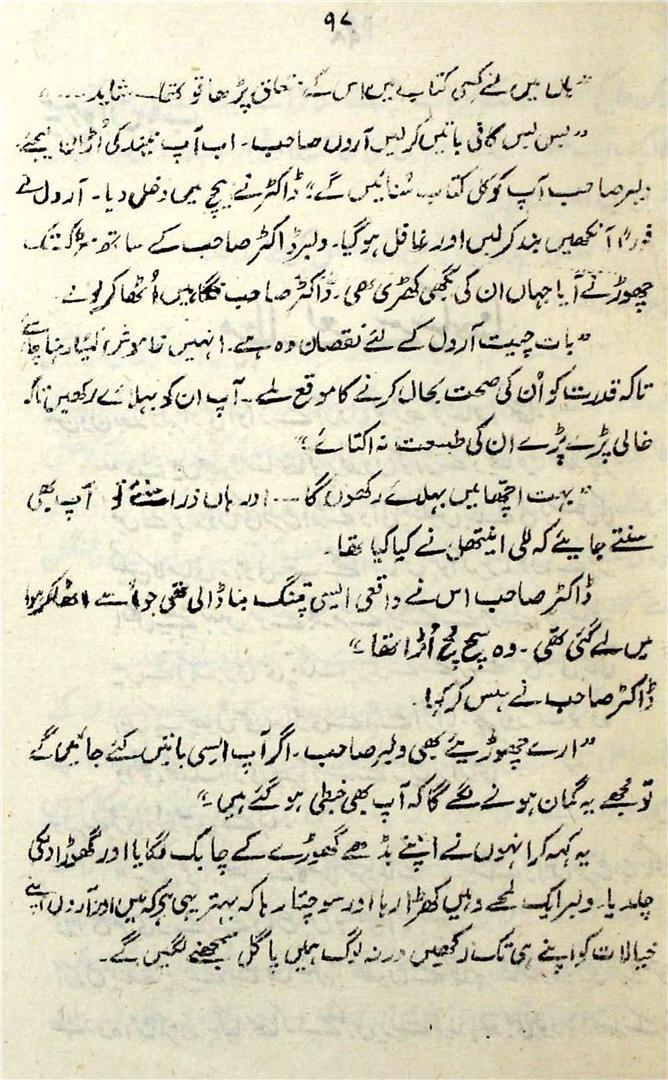 ۹۷
"ہاں میں نے کسی کتاب میں اس کے متعلق پڑھا تو تھا۔ شاید ....."
"بس بس کافی باتیں کرلیں آرول صاحب۔ اب آپ نیند کی اُڑان لیجئے۔
ولبر صاحب آپ کو کل کتاب سُنائیں گے" ڈاکٹر نے بیچ میں دخل دیا۔ آرول نے
فوراً آنکھیں بند کرلیں اور غافل ہوگیا۔ ولبر ڈاکٹر صاحب کے ساتھ سڑک تک
چھوڑنے آیا جہاں ان کی بگھی کھڑی تھی۔ ڈاکٹر صاحب نگاہیں اُٹھا کر بولے۔
"بات چیت آرول کے لئے نقصان دہ ہے۔ انہیں خاموش لیٹا رہنا چاہئے
تاکہ قدرت کو اُن کی صحت بحال کرنے کا موقع ملے۔ آپ ان کو بہلائے رکھیں تاکہ
خالی پڑے پڑے ان کی طبیعت نہ اکتائے"
"بہت اچھا میں بہلائے رکھوں گا ــــ اور ہاں ذرا سنئے تو آپ بھی
سنتے جایئے کہ للی اینتھل نے کیا کیا تھا۔
ڈاکٹر صاحب اس نے واقعی ایسی پتنگ بنا ڈالی تھی جو اُسے اٹھا کر ہوا
میں لے گئی تھی۔ وہ سچ مچ اُڑا تھا"
ڈاکٹر صاحب نے ہنس کر کہا۔
"ارے چھوڑیئے بھی ولبر صاحب۔ اگر آپ ایسی باتیں کئے جائیں گے
تو مجھے یہ گمان ہونے لگے گا کہ آپ بھی خبطی ہو گئے ہیں"
یہ کہہ کر انہوں نے اپنے بڈھے گھوڑے کے چابک لگایا اور گھوڑا دلکی
چلدیا۔ ولبر ایک لمحے وہیں کھڑا رہا اور سوچتا رہا کہ بہتر یہی ہے کہ میں اور آرول اپنے
خیالات کو اپنے ہی تک رکھیں ورنہ لوگ ہمیں پاگل سمجھنے لگیں گے۔